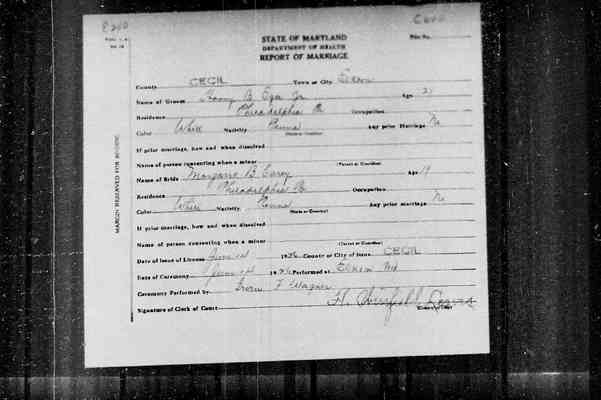 STATE OF MARYLAND
DEPARTMENT OF HEALTH
REPORT OF MARRIAGE
County CECIL Town or City Elkton
Name of Groom Harry B. Jr Age 21
Residence Philadelphia Pa Occupation
Color White Nativity Penna Any prior Marriage No
(State or Country)
If prior marriage, how and when dissolved
Name of person consenting when a minor
(Parent or Guardian)
Name of Bride Marjorie B. Carey Age 19
Residence Philadelphia Pa Occupation
Color White Nativity Penna Any prior marriage No
(State or Country)
If prior marriage, how and when dissolved
Name of person consenting when a minor
(Parent or Guardian)
Date of Issue of License June 14 192 County or City of Issue CECIL
Date of Ceremony June 14 192 Performed at Elkton Md
Ceremony Performed by F Wagner
Signature of Clerk of Court H.
MARGIN RESERVED FOR BINDING
File No.